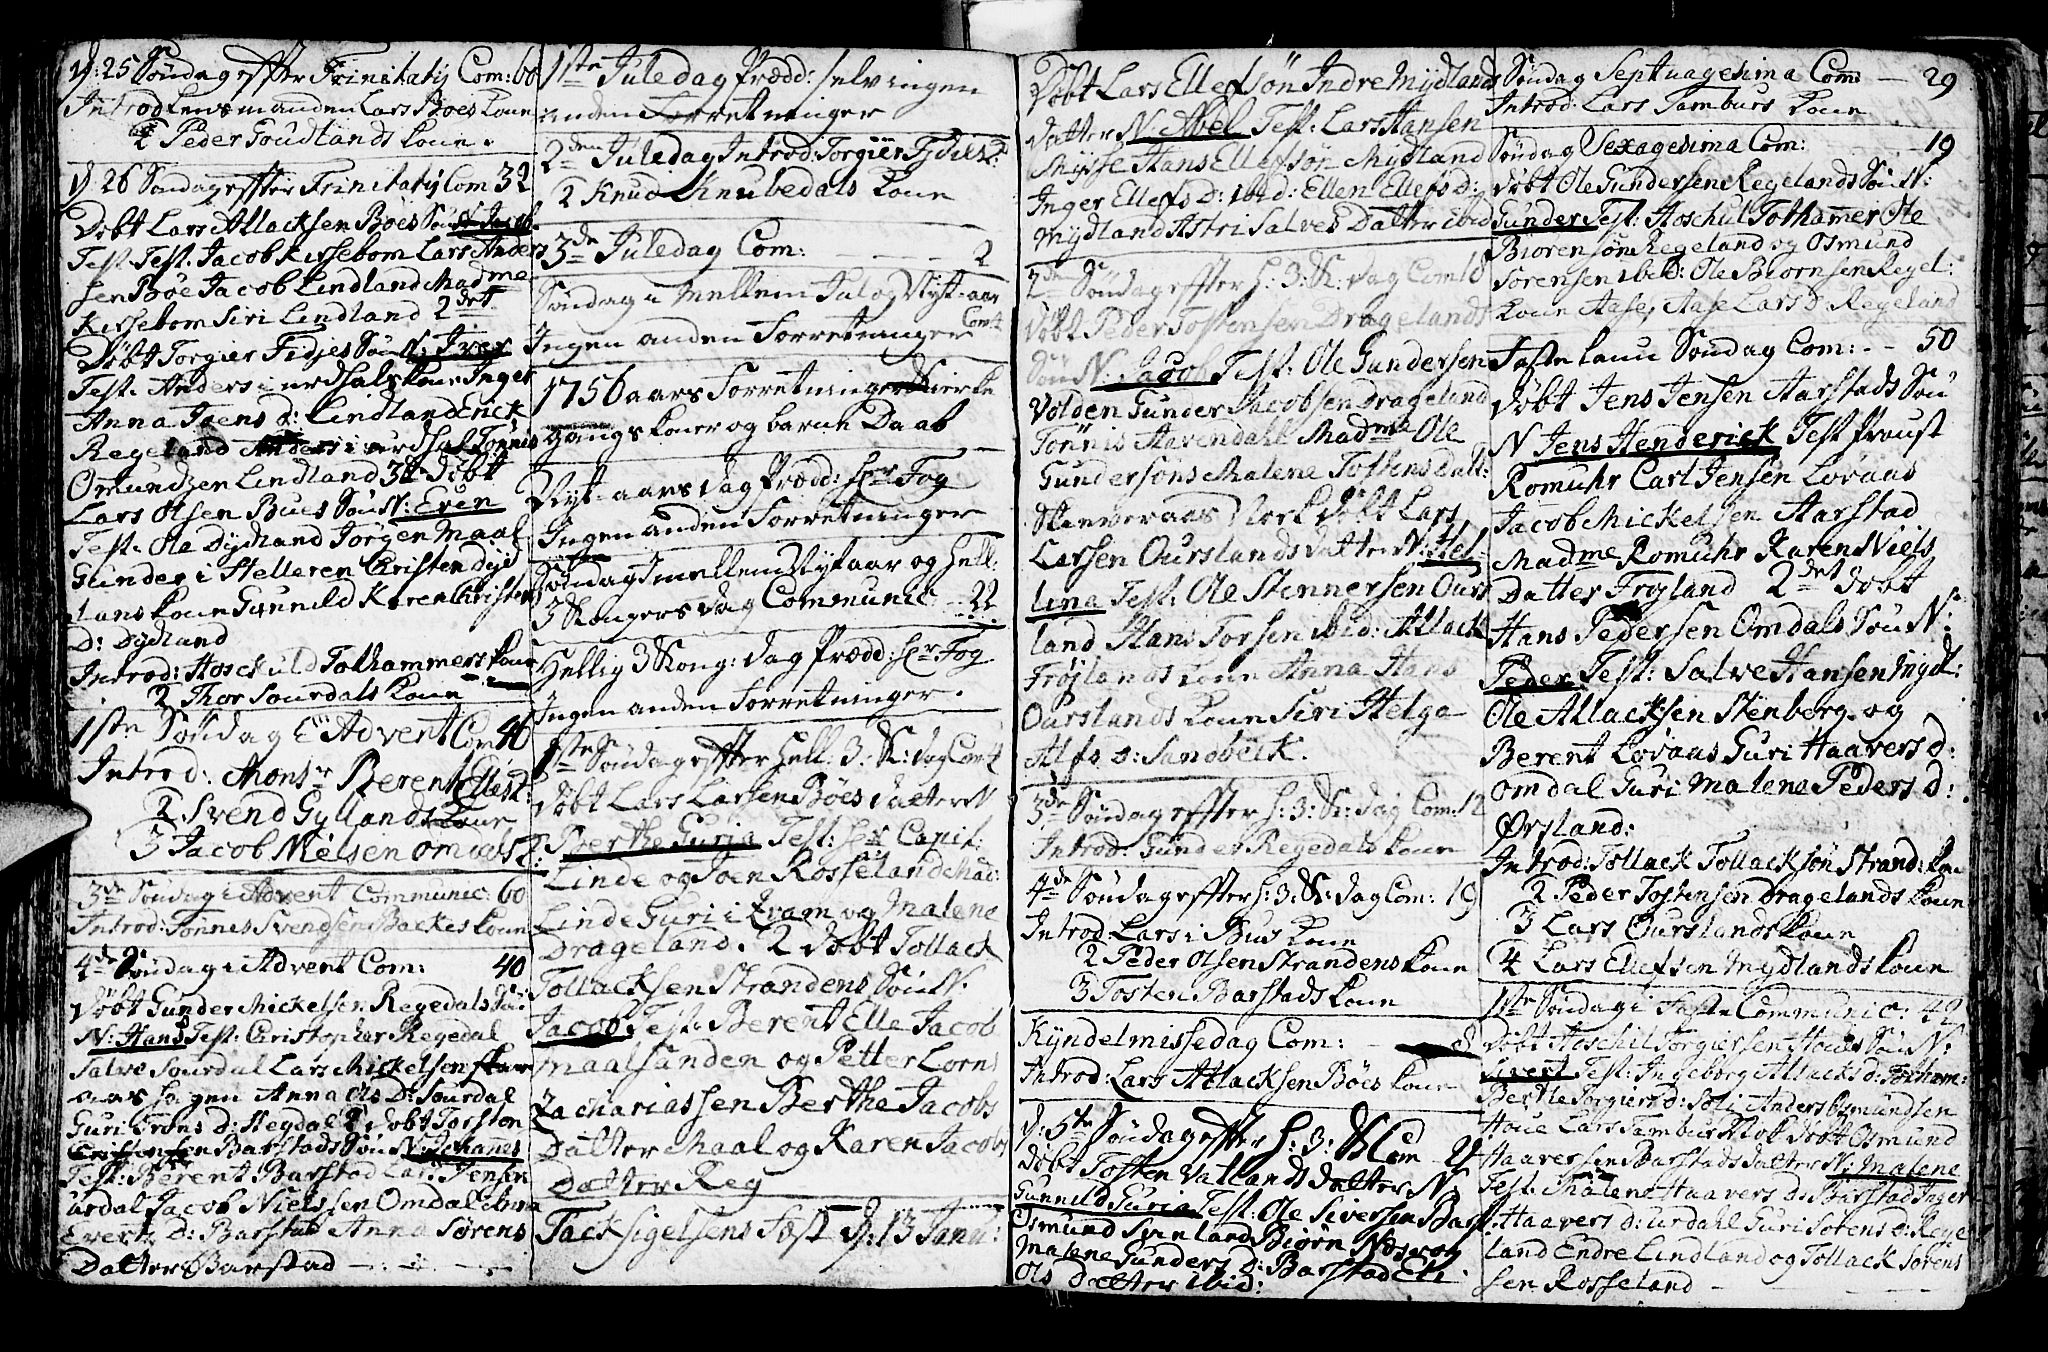 D: 25 Søndag effter Trinitatis Com: 60
Introd Lensmanden Lars Böes Kone
2 Peder Goudlands Kone.
D 26 Søndag effter Trinitatis Com 32
Döbt Lars Atlacksen Böes Sön N: Jacob
Test. Test: Jacob Kirsebom Lars Anders
sen Böe Jacob Lindland Madme
Kirsebom Siri Lindland 2det
Döbt Torgier Fidjes Sön N: Iver
Test. Anders i urdhals Kone Inger
Anna Joens d: Lindland Erick
Regeland Anders i urdhal Tönnis
Omundsen Lindland 3de döbt
Lars Olsen Bues Sön N: Even
Test. Ole Dydland Jörgen Maal
Gunder i Helleren Christen Dyd
lans Kone Gunnild Karen Christens
D: Dydland
Introd: Hosckuld Tolhammers Kone
2 Thor Sourdals Kone
1ste Søndag i Advent Com 46
Introd: Monsr Berent Elles K:
2 Svend Gyllands Kone
3 Jacob Nielsen omdals K:
3de Søndag i Advent Communic: 60
Introd: Tönnes Svendsen Backes Kone
4de Søndag i Advent Com: 40
Döbt Gunder Mickelsen Regedals Sön
N: Hans Test: Christopher Regedal
Salve Sourdal Lars Mickelsen
aas Hagen Anna Ols D: Sourdal
Guri Trons D: Heydal 2 döbt Torsten
Christensen Barstads Sön N: Johannes
Test: Berent Barstad Lars Jensen
urdal Jacob Nielssen Omdal Anna
Everts D: Barstad Anna Sörens
Datter Barstad
1ste Juledag Prædd: selv ingen
anden Forretninger
2den Juledag Introd: Torgier Fidies K:
2 Knud Knubedals Kone
3de Juledag Com: 2
Søndag i mellem Jul og Nyt-aar
Com 4
Ingen anden Forretninger
1756 aars Forretninger Kierke
gangs Koner og barne Daab
Nyt-aars dag Prædd: Hr Fog
Ingen anden Forretninger
Søndag Imellem Nytaar og Hell:
3 Kongers dag Communic - 22
Hellig 3 Kong: dag Prædd: Hr Fog
Ingen anden Forretninger.
1ste Søndag effter Hell: 3: K: dag Com 4
Döbt Lars Larsen Böes datter N
Berthe Guria Test: Hr Capit:
Linde og Joen Rosseland Mad:
Linde Guri i Kram og Malene
Drageland. 2 Döbt Tollack
Tollacksen Strandens Sön N:
Jacob Test: Berent Elle Jacob
Maalsanden og Petter Lorns
Zachariassen Berthe Jacobs
Datter Maal og Karen Jacobs
Datter Reg
Tacksigelsens Fæst D: 13 Janu:
Döbt Lars Ellefsön Indre Mydlands
datter N Abel Test: Lars Hansen
Mysse Hans Ellefsön Mydland
Inger Ellefs D: ibid: Ellen Ellefs D:
Mydland Astri Salves Datter ibid
2de Søndag effter H: 3: K: dag Com 18
Döbt Peder Tostensen Dragelands
Sön N: Jacob Test: Ole Gundersen
Volden Gunder Jacobsen Drageland
Tönnis Havendahl Madme Ole
Gundersons Malene Tostens datt:
Skinveraas Nock döbt Lars
Larsen Ourslands datter N: Hel
lena Test: Ole Stennersen Ours
land Hans Torsen ibid: Atlack
Fröjlands Kone Anna Hans
Ourslands Kone Siri Helge
Alfs D: Sandbeck.
3de Søndag effter H: 3: K: dag Com: 12
Introd: Gunder Regedals Kone
4de Søndag effter H: 3: K: dag Com: 19
Introd: Lars i Bus Kone
2 Peder Olsen Strandens Kone
3 Tosten Barstads Kone
Kyndelmissedag Com: 8
Introd: Lars Atlacksen Böes Kone
D: 5te Søndag effter H: 3: K Com
Döbt Tosten Vatlands datter N
Gunnild Guria Test: Ole Siversen Barst.
Osmund Svinland Biörn Næs og
Malene Gunders D: Barstad Eli
Ols Datter ibid:
Søndag Septuagesima Com: - 29
Introd: Lars Tamburs Kone
Søndag Sexagesima Com: 19
Döbt Ole Gundersen Regelands Sön N:
Gunder Test: Hoschul Tothammer Ole
Biörensøn Regeland og Osmund
Sörensen ibid: Ole Biörnsen Regel:
Kone Aase, Aase Lars D: Regeland
Fastelaun Søndag Com: - 50
Döbt Jens Jensen Aarstads Sön
N Jens Henderick Test Proust
Romuhr Carl Jensen Lovaas
Jacob Mickelsen Aarstad
Madme Romuhr Karen Niels
Datter Fröjland 2det döbt
Hans Pedersen Omdals Sön N:
Peder Test: Salve Hansen Mydl:
Ole Atlacksen Stenberg og
Berent Lovaas Guri Haavers d:
Omdal Guri Malene Peders D:
Ørsland:
Introd: Tollack Tollacksön Strand: Kon
2 Peder Tostensen Dragelands Kone
3 Lars Ourslands Kone
4 Lars Ellefsen Mydlands Kone
1ste Søndag i Faste Communic: 42
Döbt Hoschil Torgiersen Houes Sön N:
Sivert Test: Ingeborg Atlacks d: Tolham:
Berthe Torgiers d: Anders Osmundsen
Houe Lars Tambur Nok döbt Osmund
Haaversen Barstads datter N: Malene
Test: Malene Haavers D: Barstad Inger
Haavers d: urdahl Guri Sörens d: Rege
land Endre Lindland og Tollack Sörens
sen Rosseland